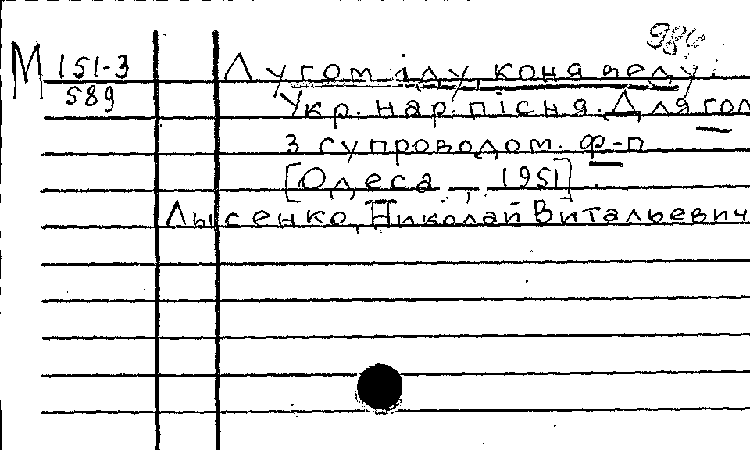 984
М 151-3 Лугом іду, коня веду.
589 Укр. нар. пісня. Для гол
з супроводом. ф-п
[Одеса, 1951].
Лысенко, Николай Витальевич